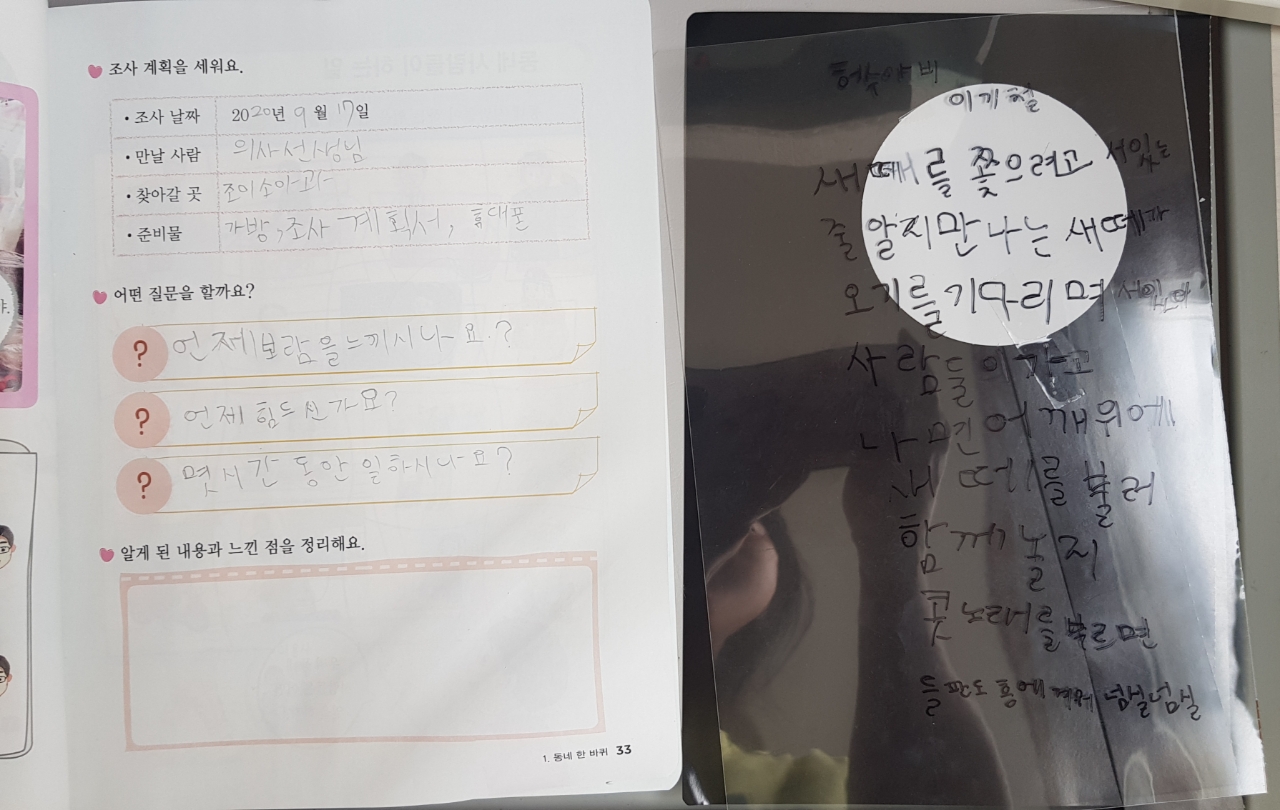 조사 계획을 세워요.
• 조사 날짜 2020년 9월 17일
• 만날 사람 의사선생님
• 찾아갈 곳 조이소아과
• 준비물 가방, 조사 계획서, 휴대폰
어떤 질문을 할까요?
? 언제보람을느끼시나요.?
? 언제 힘드신가요?
? 몇시간 동안 일하시나요?
알게 된 내용과 느낀 점을 정리해요.
1. 동네 한 바퀴 33
야.
허수아비
이게 철
새떼를 쫓으려고 서있는
줄 알지만 나는 새떼가
오기를 기다리며
사람들이 가고
나면 어깨위에
새떼를 불러
함께 놀지
콧노래를 부르면
들판도 흥에 넘실넘실